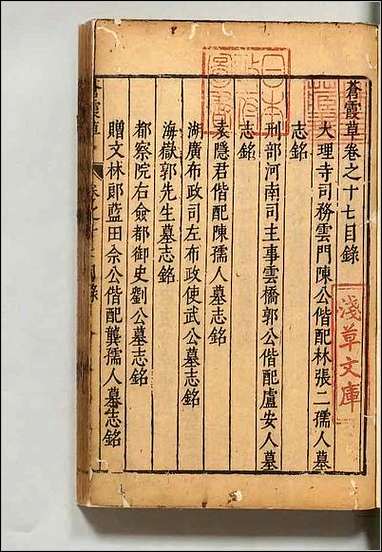 蒼霞草卷之十七目錄
大理寺司務雲門陳公偕配林張二孺人墓
志銘
刑部河南司主事雲橋郭公偕配盧安人墓
志銘
素隱君偕配陳孺人墓志銘
湖廣布政司左布政使武公墓志銘
海嶽郭先生墓志銘
都察院右僉都御史劉公墓志銘
贈文林郎藍田佘公偕配龔孺人墓志銘
淺草文庫